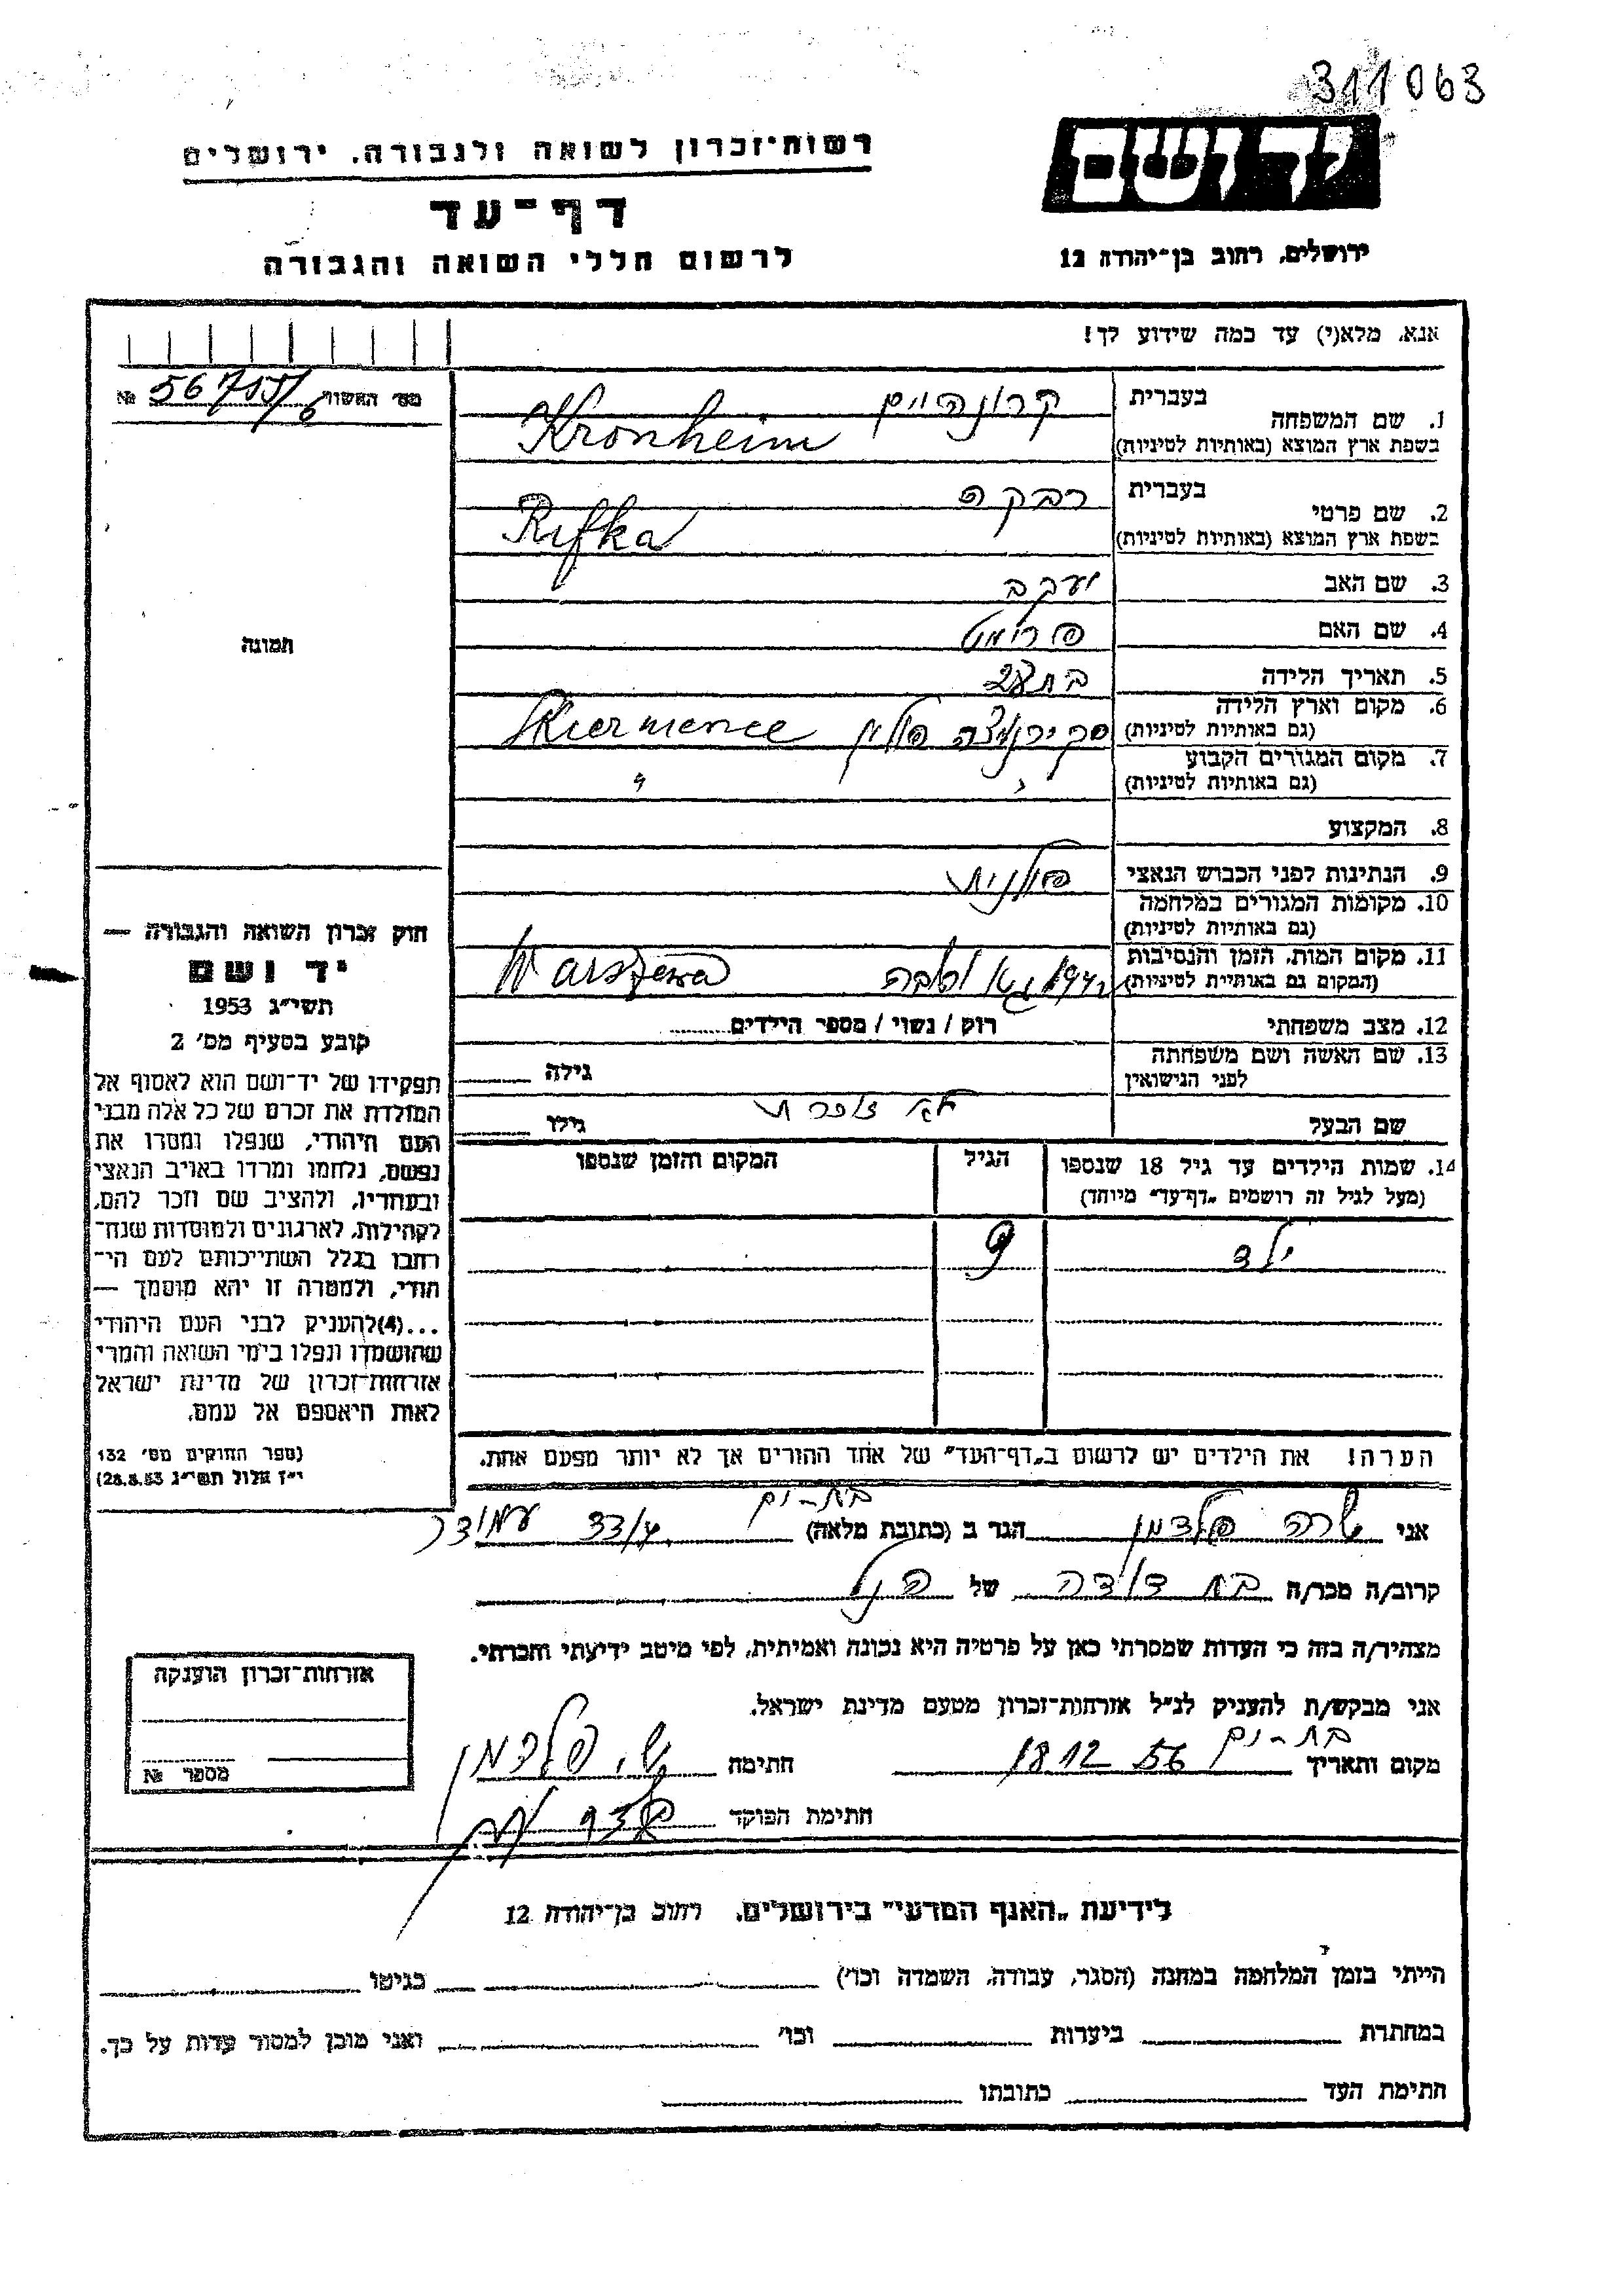 311063
יד ושם
רשות־זכרון לשואה ולגבורה, ירושלים
דף־עד
לרשום חללי השואה והגבורה
ירושלים, רחוב בן־יהודה 12
אנא, מלא(י) עד כמה שידוע לך!
מס׳ האשור 56755/6 №
1. שם המשפחה
בעברית קרונהיים
בשפת ארץ המוצא (באותיות לטיניות) Kronheim
2. שם פרטי
בעברית רבקה
בשפת ארץ המוצא (באותיות לטיניות) Rifka
3. שם האב יעקב
4. שם האם פרימט
5. תאריך הלידה בת 28
6. מקום וארץ הלידה
(גם באותיות לטיניות) סקירנוצה פולין Skiernence
7. מקום המגורים הקבוע
(גם באותיות לטיניות) " "
8. המקצוע
9. הנתינות לפני הכבוש הנאצי פולנית
10. מקומות המגורים במלחמה
(גם באותיות לטיניות)
11. מקום המות, הזמן והנסיבות
(המקום גם באותיית לטיניות) Warszewa
12. מצב משפחתי רוק / נשוי / מספר הילדים
13. שם האשה ושם משפחתה
לפני הנישואין גילה
שם הבעל גילו
14. שמות הילדים עד גיל 18 שנספו
(מעל לגיל זה רושמים „דף־עד” מיוחד)
הגיל
המקום והזמן שנספו
ילד 9
הערה! את הילדים יש לרשום ב„דף־העד” של אחד ההורים אך לא יותר מפעם אחת.
תמונה
חוק זכרון השואה והגבורה —
יד ושם
תשי״ג 1953
קובע בסעיף מס׳ 2
תפקידו של יד־ושם הוא לאסוף אל
המולדת את זכרם של כל אלה מבני
העם היהודי, שנפלו ומסרו את
נפשם, נלחמו ומרדו באויב הנאצי
ובעוזריו, ולהציב שם וזכר להם,
לקהילות, לארגונים ולמוסדות שנח־
רחבו בגלל השתייכותם לעם הי־
הודי, ולמטרה זו יהא מוסמך —
...(4)להעניק לבני העם היהודי
שהושמדו ונפלו בימי השואה והמרי
אזרחות־זכרון של מדינת ישראל
לאות היאספם אל עמם.
(ספר החוקים מס׳ 132
י״ז אלול תשי״ג 28.8.53)
בת-ים
אני שרה פלדמן הגר ב (כתובת מלאה) 33/4 עמידר
קרוב/ה מכר/ה בת דודה של הנ״ל
מצהיר/ה בזה כי העדות שמסרתי כאן על פרטיה היא נכונה ואמיתית, לפי מיטב ידיעתי והכרתי.
אני מבקש/ת להעניק לנ״ל אזרחות־זכרון מטעם מדינת ישראל.
בת-ים
מקום ותאריך 18 12 56 חתימה ש. פלדמן
חתימת הפוקד
אזרחות־זכרון הוענקה
מספר №
לידיעת „האגף המדעי” בירושלים, רחוב בן־יהודה 12
הייתי בזמן המלחמה במחנה (הסגר, עבודה, השמדה וכו׳) בגיטו
במחתרת ביערות וכו׳ ואני מוכן למסור עדות על כך.
חתימת העד כתובתו